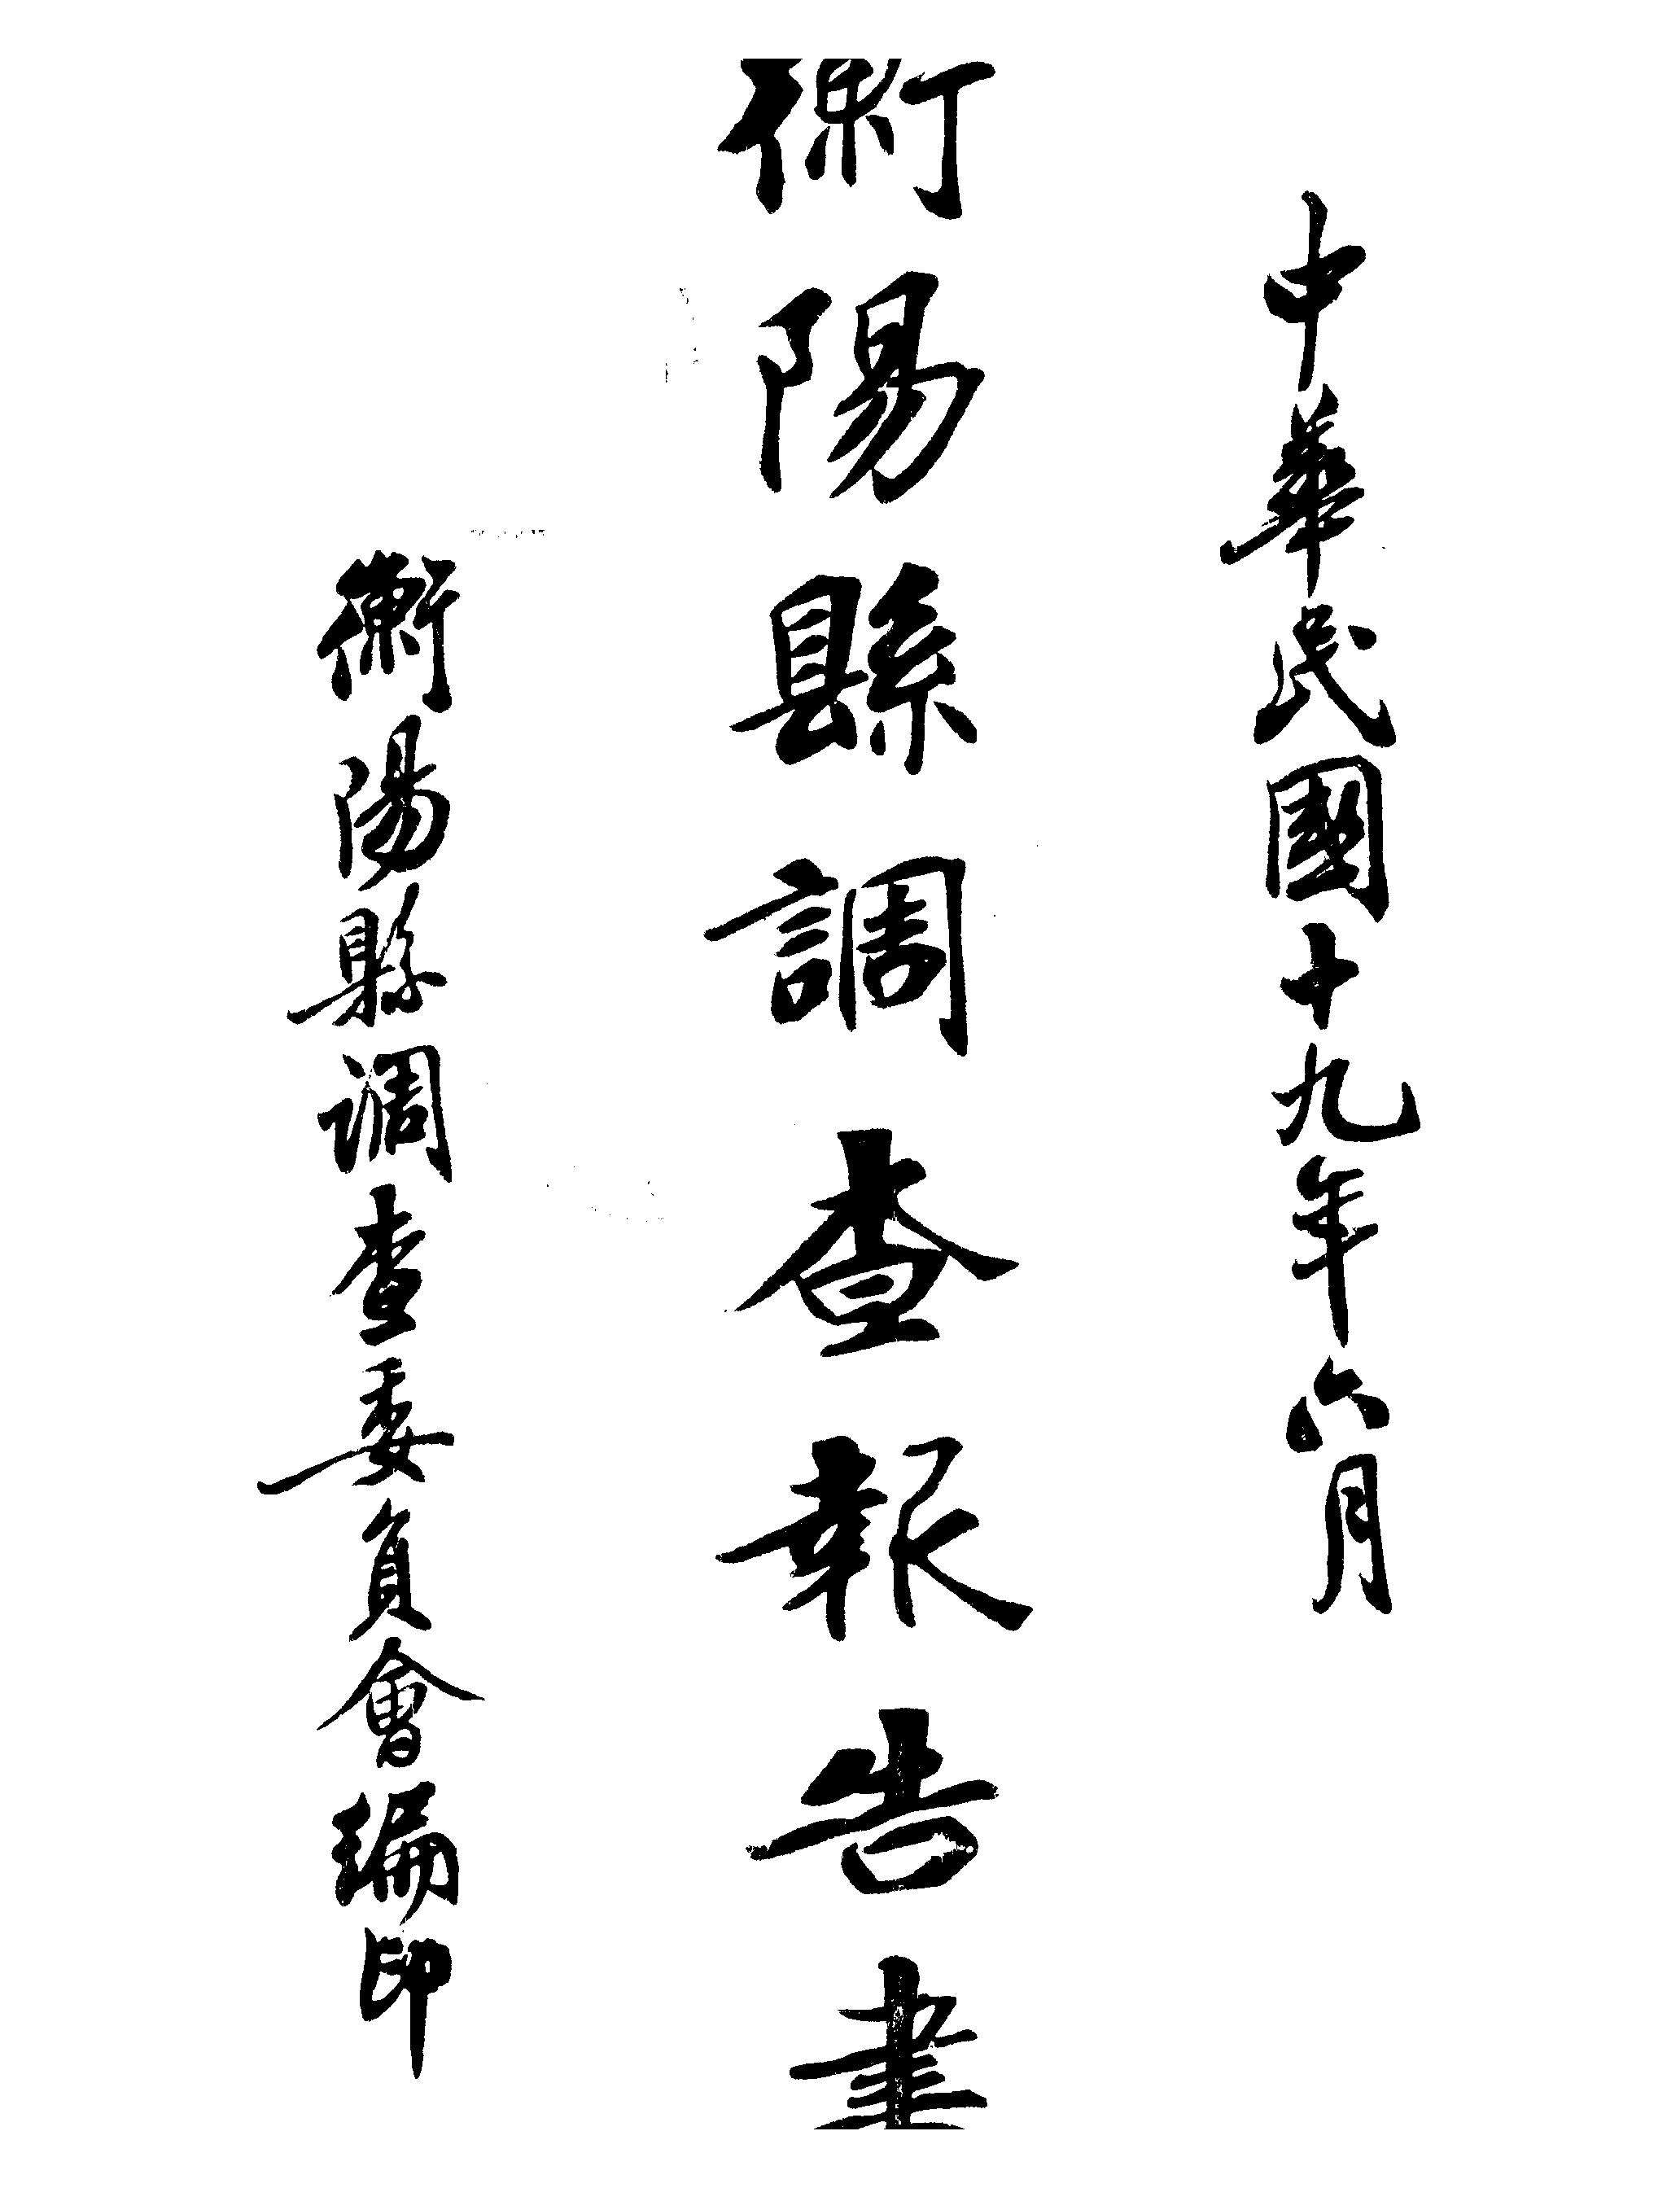 中華民國十九年六月
衡陽縣調查報告書
衡陽縣調查委員會編印